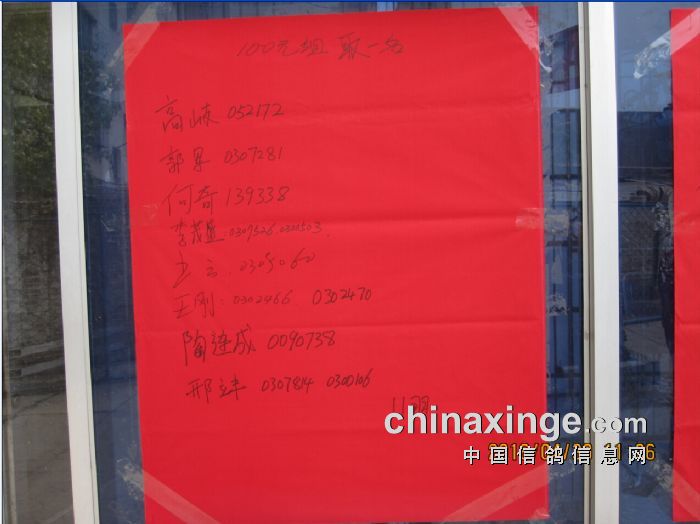 100元组 取一名
高峡 052172
郭军 0307281
何奇 139338
李茂盛: 0307526.0300503.
王刚: 0302466 0302470
陶连成 0090738
邢立丰 0307814 0300106
11羽
chinaxinge.com
中国信鸽信息网